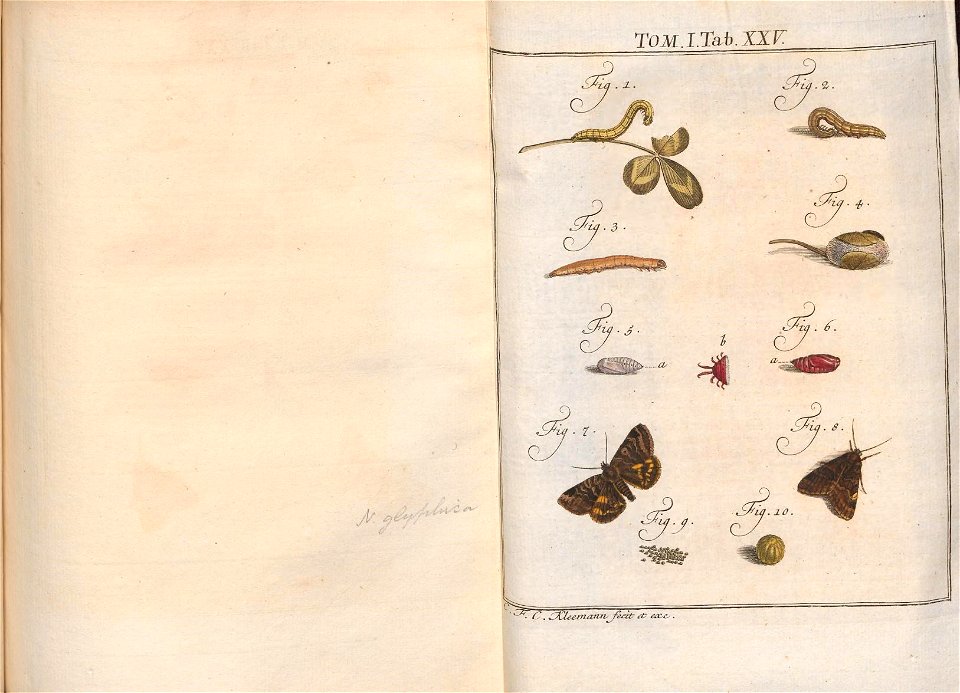 N. glyphica
TOM. I. Tab. XXV.
Fig. 1.
Fig. 2.
Fig. 3.
Fig. 4.
Fig. 5.
Fig. 6.
a
b
a
Fig. 7.
Fig. 8.
Fig. 9.
Fig. 10.
C. F. C. Kleemann fecit et exc.